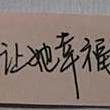 让她幸福